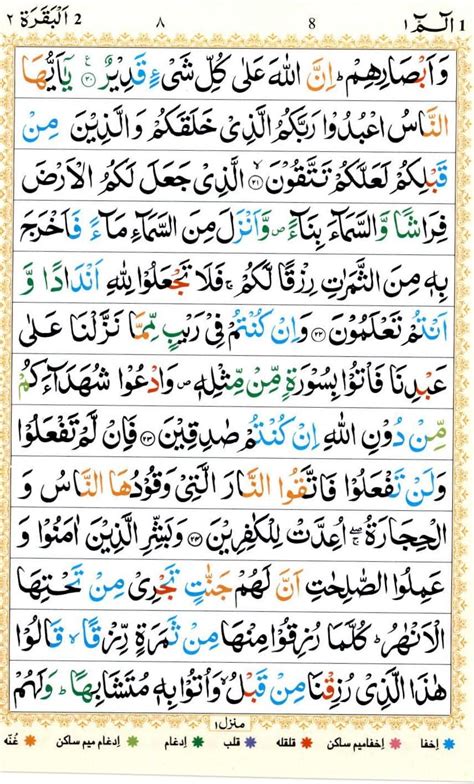 2 اَلْبَقَرَة ٢ ٨ 8 1 الٓمّٓ ١
وَاَبْصَارِهِمْ ؕ اِنَّ اللّٰهَ عَلٰى كُلِّ شَیْءٍ قَدِیْرٌ ۧ ﴿۲۰﴾ یٰۤاَیُّهَا
النَّاسُ اعْبُدُوْا رَبَّكُمُ الَّذِیْ خَلَقَكُمْ وَالَّذِیْنَ مِنْ
قَبْلِكُمْ لَعَلَّكُمْ تَتَّقُوْنَ ۙ ﴿۲۱﴾ الَّذِیْ جَعَلَ لَكُمُ الْاَرْضَ
فِرَاشًا وَّالسَّمَآءَ بِنَآءً ۪ وَّاَنْزَلَ مِنَ السَّمَآءِ مَآءً فَاَخْرَجَ
بِهٖ مِنَ الثَّمَرٰتِ رِزْقًا لَّكُمْ ۚ فَلَا تَجْعَلُوْا لِلّٰهِ اَنْدَادًا وَّ
اَنْتُمْ تَعْلَمُوْنَ ﴿۲۲﴾ وَاِنْ كُنْتُمْ فِیْ رَیْبٍ مِّمَّا نَزَّلْنَا عَلٰى
عَبْدِنَا فَاْتُوْا بِسُوْرَةٍ مِّنْ مِّثْلِهٖ ۪ وَادْعُوْا شُهَدَآءَكُمْ
مِّنْ دُوْنِ اللّٰهِ اِنْ كُنْتُمْ صٰدِقِیْنَ ﴿۲۳﴾ فَاِنْ لَّمْ تَفْعَلُوْا
وَلَنْ تَفْعَلُوْا فَاتَّقُوا النَّارَ الَّتِیْ وَقُوْدُهَا النَّاسُ وَ
الْحِجَارَةُ ۖۚ اُعِدَّتْ لِلْكٰفِرِیْنَ ﴿۲۴﴾ وَبَشِّرِ الَّذِیْنَ اٰمَنُوْا وَ
عَمِلُوا الصّٰلِحٰتِ اَنَّ لَهُمْ جَنّٰتٍ تَجْرِیْ مِنْ تَحْتِهَا
الْاَنْهٰرُ ؕ كُلَّمَا رُزِقُوْا مِنْهَا مِنْ ثَمَرَةٍ رِّزْقًا ۙ قَالُوْا
هٰذَا الَّذِیْ رُزِقْنَا مِنْ قَبْلُ ۙ وَاُتُوْا بِهٖ مُتَشَابِهًا ؕ وَلَهُمْ
منزل ١
اِخفا اِخفامیم ساکن قلقله قلب اِدغام اِدغام میم ساکن غُنّه